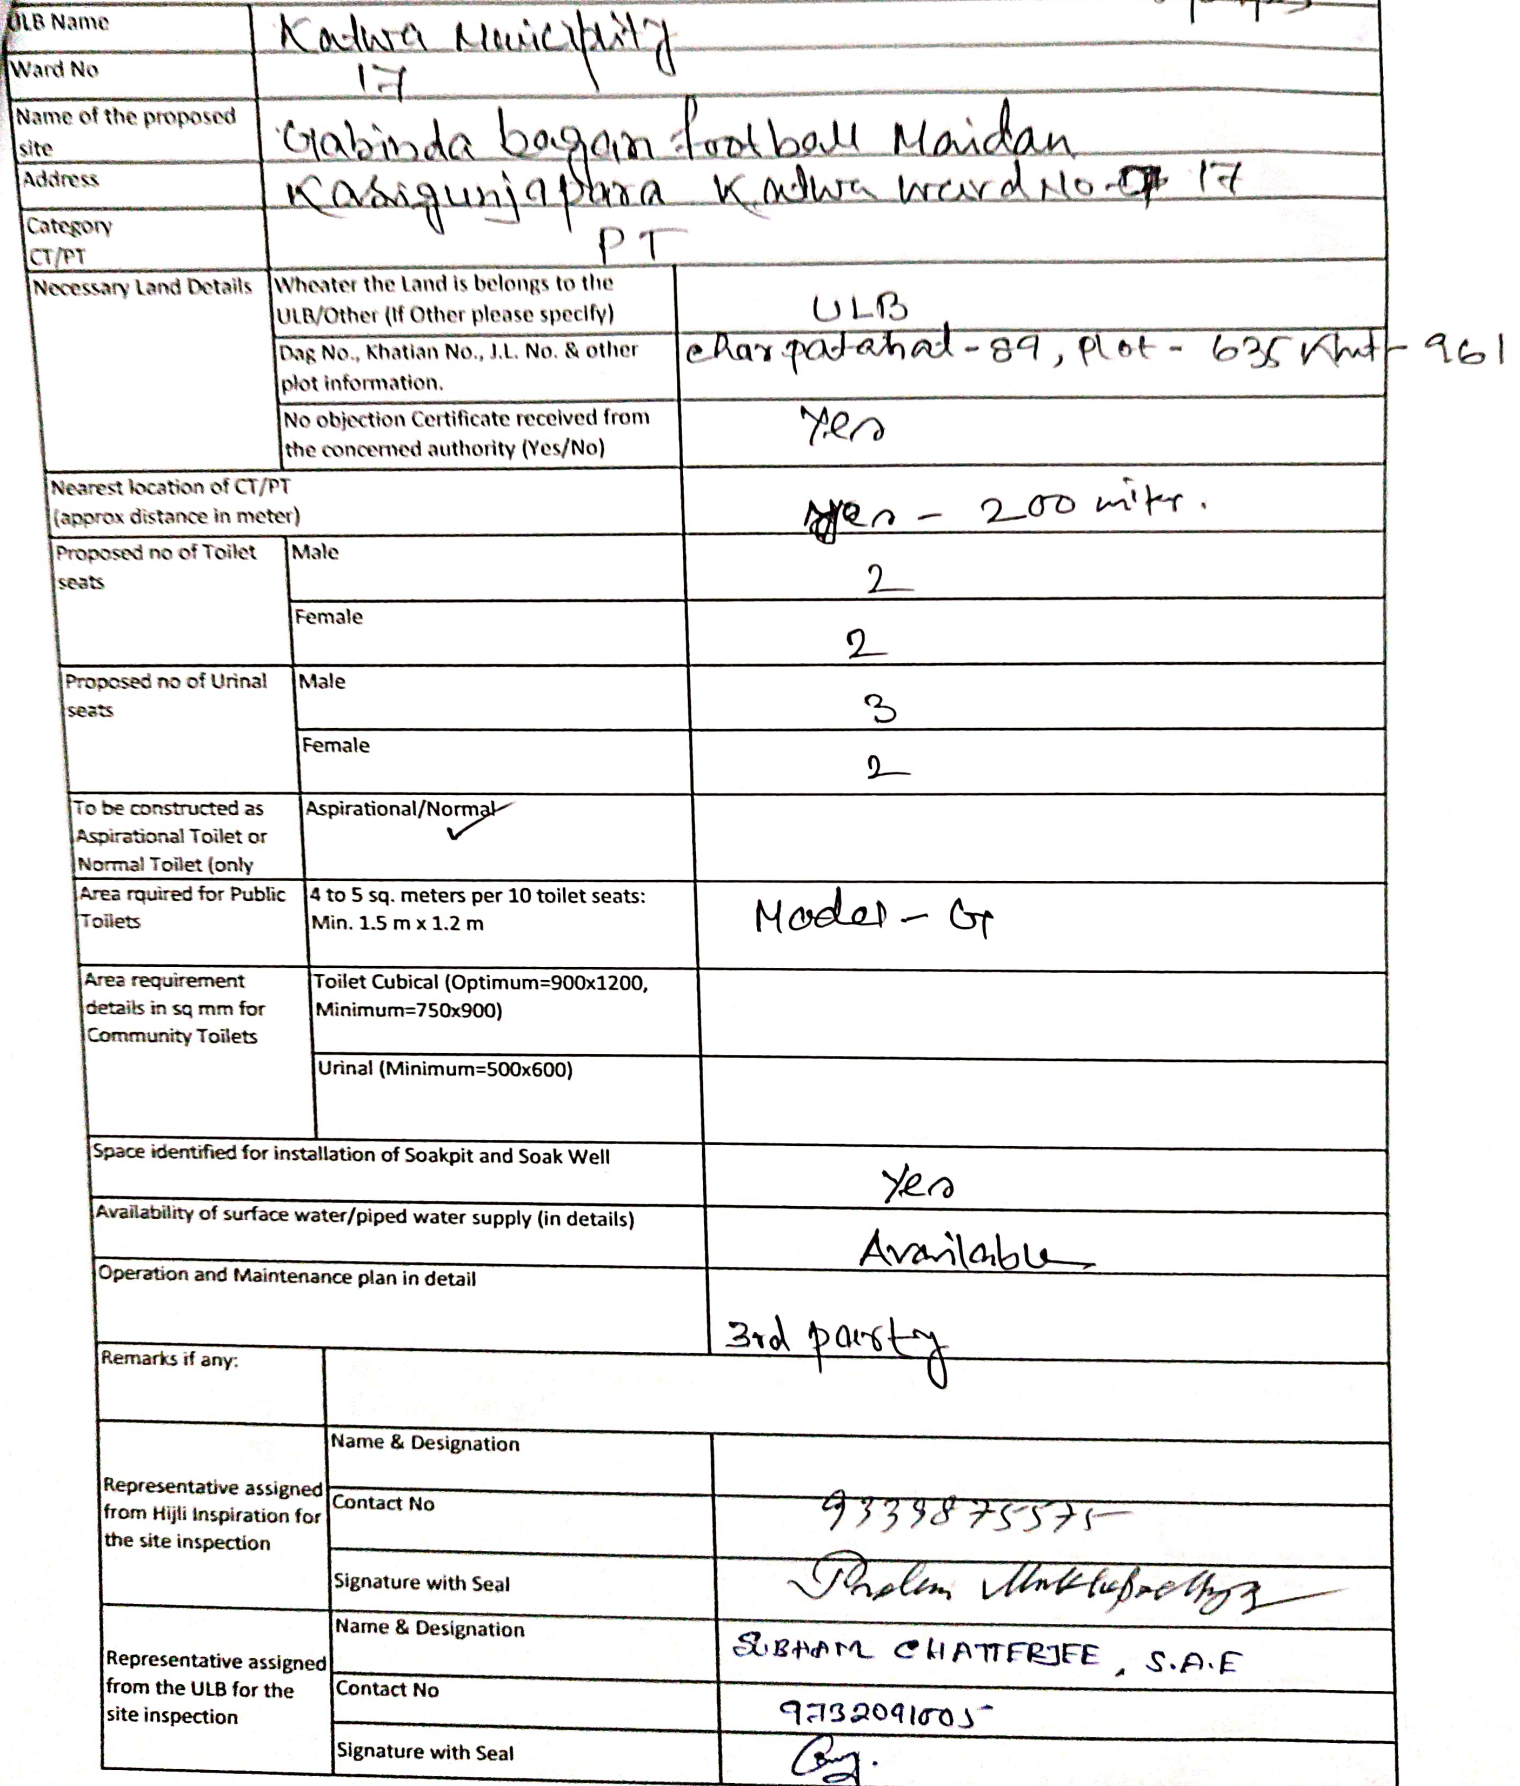 ULB Name Katwa Municiplity
Ward No 17
Name of the proposed
site Gabinda bagan football Maidan
Address Kasigunjapara Katwa ward No- 17
Category
CT/PT PT
Necessary Land Details Wheater the Land is belongs to the
ULB/Other (If Other please specify) ULB
Dag No., Khatian No., J.L. No. & other
plot information. char patahat - 89, plot - 635 Kht - 961
No objection Certificate received from
the concerned authority (Yes/No) Yes
Nearest location of CT/PT
(approx distance in meter) yes - 200 mitr.
Proposed no of Toilet
seats
Male 2
Female 2
Proposed no of Urinal
seats
Male 3
Female 2
To be constructed as
Aspirational Toilet or
Normal Toilet (only
Aspirational/Normal ✓
Area rquired for Public
Toilets
4 to 5 sq. meters per 10 toilet seats:
Min. 1.5 m x 1.2 m
Model - G
Area requirement
details in sq mm for
Community Toilets
Toilet Cubical (Optimum=900x1200,
Minimum=750x900)
Urinal (Minimum=500x600)
Space identified for installation of Soakpit and Soak Well Yes
Availability of surface water/piped water supply (in details) Available
Operation and Maintenance plan in detail 3rd party
Remarks if any:
Representative assigned
from Hijli Inspiration for
the site inspection
Name & Designation
Contact No 9339875575
Signature with Seal
Representative assigned
from the ULB for the
site inspection
Name & Designation SUBHAM CHATTERJEE, S.A.E
Contact No 9732091005
Signature with Seal